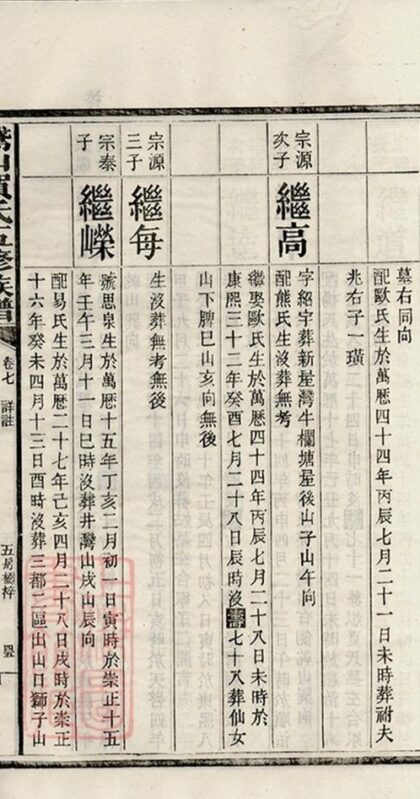 墓右同向
配歐氏生於萬曆四十四年丙辰七月二十一日未時葬祔夫
兆右子一璜
宗源
次子
繼高
字紹宇葬新屋灣牛欄塘屋後山子山午向
配熊氏生沒葬無考
繼娶歐氏生於萬曆四十四年丙辰七月二十八日未時於
康熙三十二年癸酉七月二十八日辰時沒壽七十八葬仙女
山下脾巳山亥向無後
宗源
三子
繼每
生沒葬無考無後
宗泰
子
繼嶸
號思泉生於萬曆十五年丁亥二月初一日寅時於崇正十五
年壬午三月十一日巳時沒葬井灣山戌山辰向
配易氏生於萬曆二十七年己亥四月二十八日戌時於崇正
十六年癸未四月十三日酉時沒葬三都二區出山口獅子山
賀氏五修族譜
卷七
詳註
五房
梓